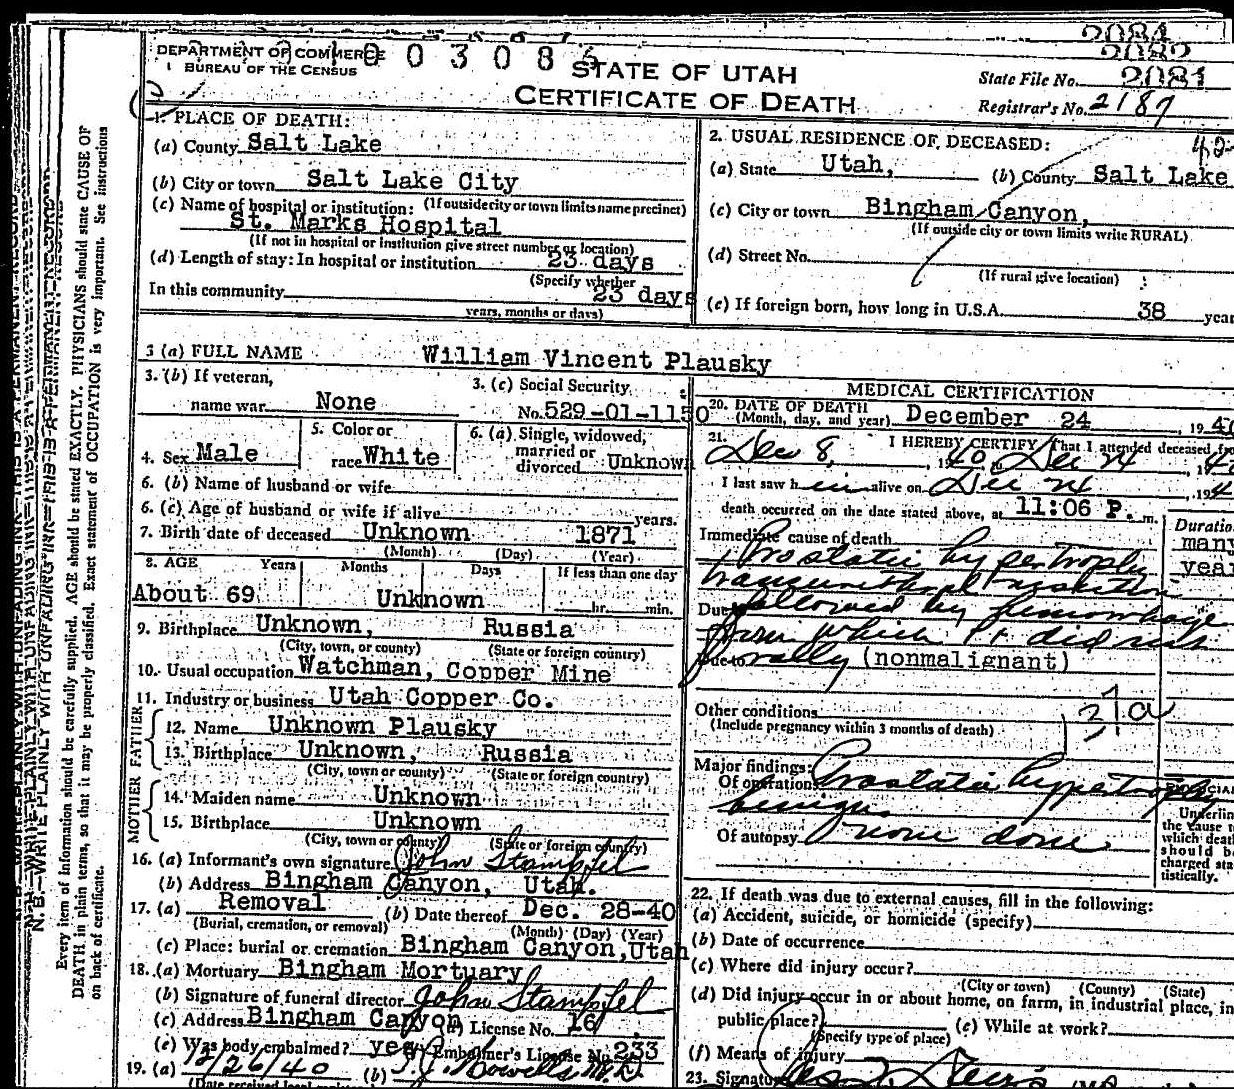 2084
2082
DEPARTMENT OF COMMERCE
BUREAU OF THE CENSUS
0 0 3 0 8
STATE OF UTAH
CERTIFICATE OF DEATH
State File No. 2081
Registrar's No. 2187
1. PLACE OF DEATH:
(a) County Salt Lake
(b) City or town Salt Lake City
(If outside city or town limits name precinct)
(c) Name of hospital or institution:
St. Marks Hospital
(If not in hospital or institution give street number or location)
(d) Length of stay: In hospital or institution 23 days
(Specify whether
In this community 23 days
years, months or days)
2. USUAL RESIDENCE OF DECEASED:
(a) State Utah, (b) County Salt Lake
(c) City or town Bingham Canyon,
(If outside city or town limits write RURAL)
(d) Street No.
(If rural give location)
(e) If foreign born, how long in U.S.A. 38 year
3 (a) FULL NAME William Vincent Plausky
3. (b) If veteran,
name war None
3. (c) Social Security
No. 529-01-1150
4. Sex Male
5. Color or
race White
6. (a) Single, widowed,
married or
divorced Unknown
6. (b) Name of husband or wife
6. (c) Age of husband or wife if alive years.
7. Birth date of deceased Unknown 1871
(Month) (Day) (Year)
8. AGE Years Months Days If less than one day
About 69 Unknown hr. min.
9. Birthplace Unknown, Russia
(City, town, or county) (State or foreign country)
10. Usual occupation Watchman, Copper Mine
11. Industry or business Utah Copper Co.
FATHER
12. Name Unknown Plausky
13. Birthplace Unknown, Russia
(City, town or county) (State or foreign country)
MOTHER
14. Maiden name Unknown
15. Birthplace Unknown
(City, town or county) (State or foreign country)
16. (a) Informant's own signature John Stampfel
(b) Address Bingham Canyon, Utah.
17. (a) Removal (b) Date thereof Dec. 28-40
(Burial, cremation, or removal) (Month) (Day) (Year)
(c) Place: burial or cremation Bingham Canyon, Utah
18. (a) Mortuary Bingham Mortuary
(b) Signature of funeral director John Stampfel
(c) Address Bingham Canyon (d) License No. 16
(e) Was body embalmed? yes Embalmer's License No. 233
19. (a) 12/26/40 (b)
MEDICAL CERTIFICATION
20. DATE OF DEATH
(Month, day, and year) December 24, 1940
21. I HEREBY CERTIFY That I attended deceased from
Dec 8, 1940 to Dec 24 1940
I last saw him alive on Dec 24, 194
death occurred on the date stated above, at 11:06 P. m.
Duratio
many
year
Immediate cause of death
Prostatic hypertrophy
transurethral resection
Due to followed by hemorrhage
from which it did not
Due to rally (nonmalignant)
Other conditions
(Include pregnancy within 3 months of death)
Major findings:
Of operations Prostatic hypertrophy
benign
Of autopsy none done
Underlin
the cause t
which deat
should b
charged sta
tistically.
22. If death was due to external causes, fill in the following:
(a) Accident, suicide, or homicide (specify)
(b) Date of occurrence
(c) Where did injury occur?
(City or town) (County) (State)
(d) Did injury occur in or about home, on farm, in industrial place, in
public place? (e) While at work?
(Specify type of place)
(f) Means of injury
23. Signature
N. B.—WRITE PLAINLY WITH UNFADING INK—THIS IS A PERMANENT RECORD
Every item of information should be carefully supplied. AGE should be stated EXACTLY. PHYSICIANS should state CAUSE OF
DEATH in plain terms, so that it may be properly classified. Exact statement of OCCUPATION is very important. See instructions
on back of certificate.